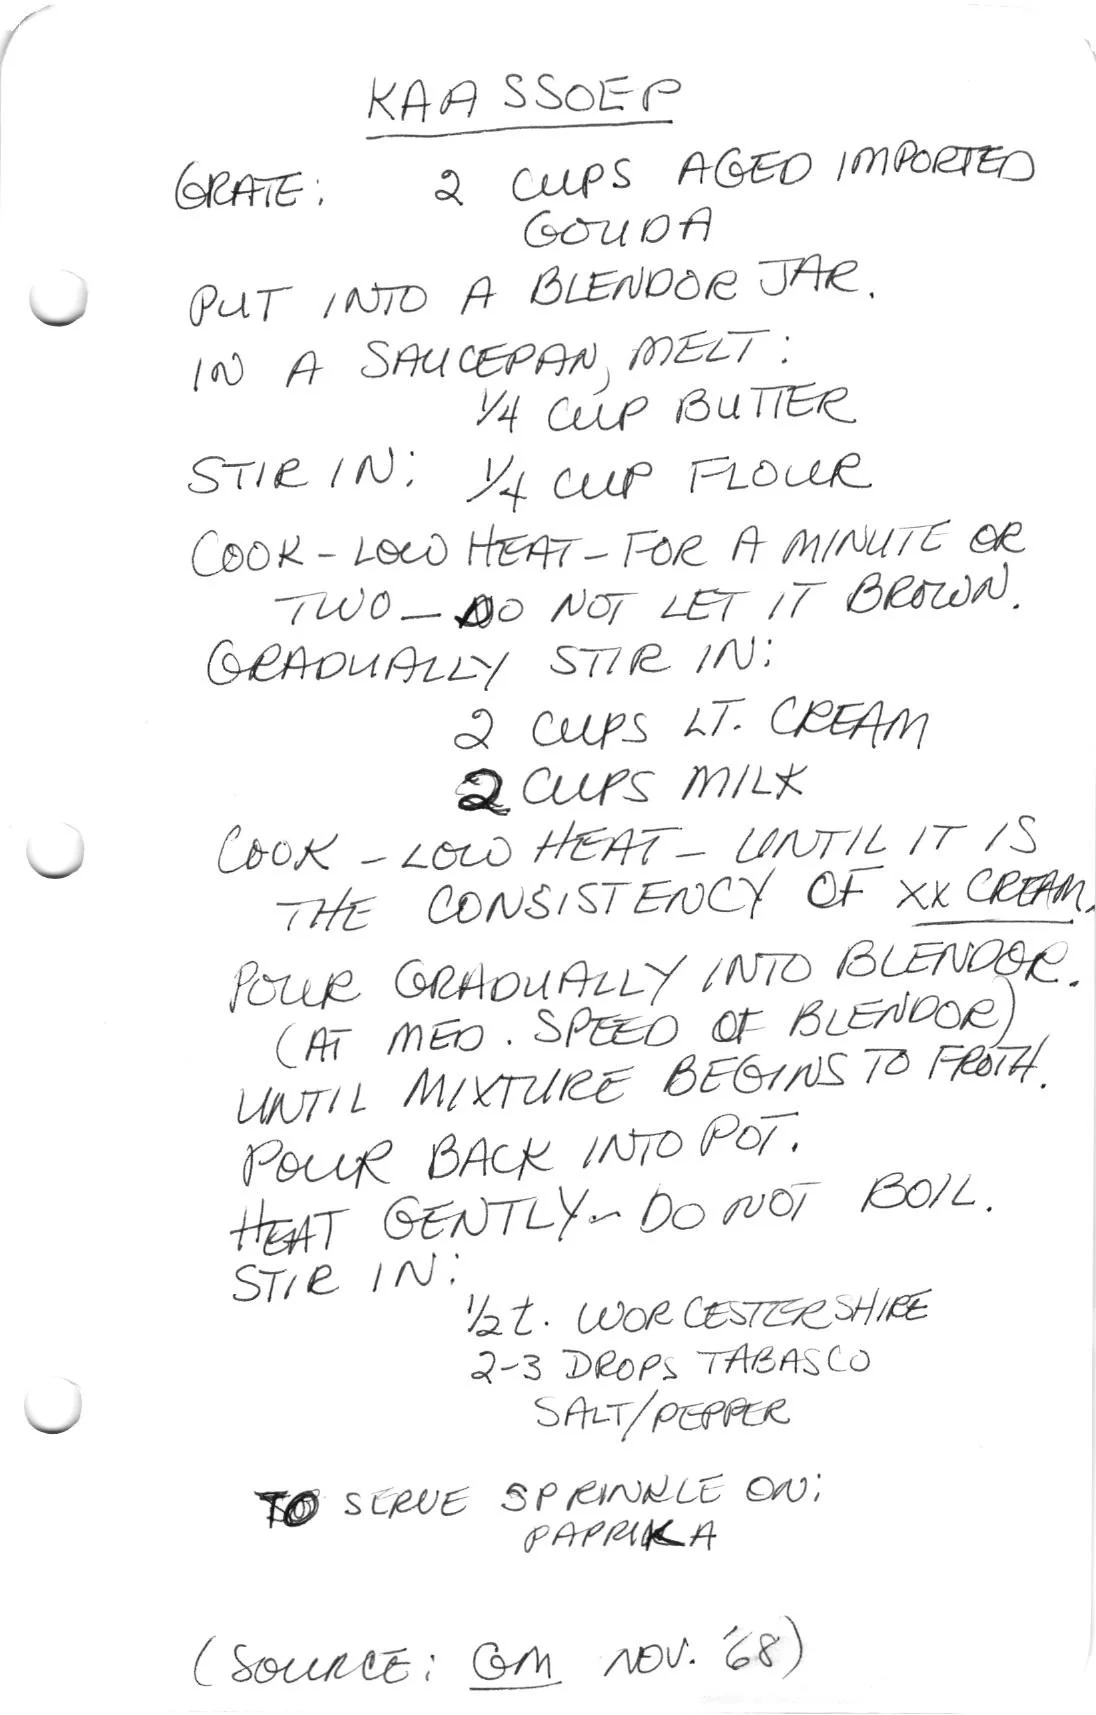 KAASSOEP
GRATE: 2 CUPS AGED IMPORTED
GOUDA
PUT INTO A BLENDOR JAR.
IN A SAUCEPAN, MELT:
1/4 CUP BUTTER
STIR IN: 1/4 CUP FLOUR
COOK - LOW HEAT - FOR A MINUTE OR
TWO - DO NOT LET IT BROWN.
GRADUALLY STIR IN:
2 CUPS LT. CREAM
2 CUPS MILK
COOK - LOW HEAT - UNTIL IT IS
THE CONSISTENCY OF XX CREAM.
POUR GRADUALLY INTO BLENDOR.
(AT MED. SPEED OF BLENDOR)
UNTIL MIXTURE BEGINS TO FROTH.
POUR BACK INTO POT.
HEAT GENTLY - DO NOT BOIL.
STIR IN:
1/2 t. WORCESTERSHIRE
2-3 DROPS TABASCO
SALT/PEPPER
TO SERVE SPRINKLE ON:
PAPRIKA
(SOURCE: GM NOV. '68)